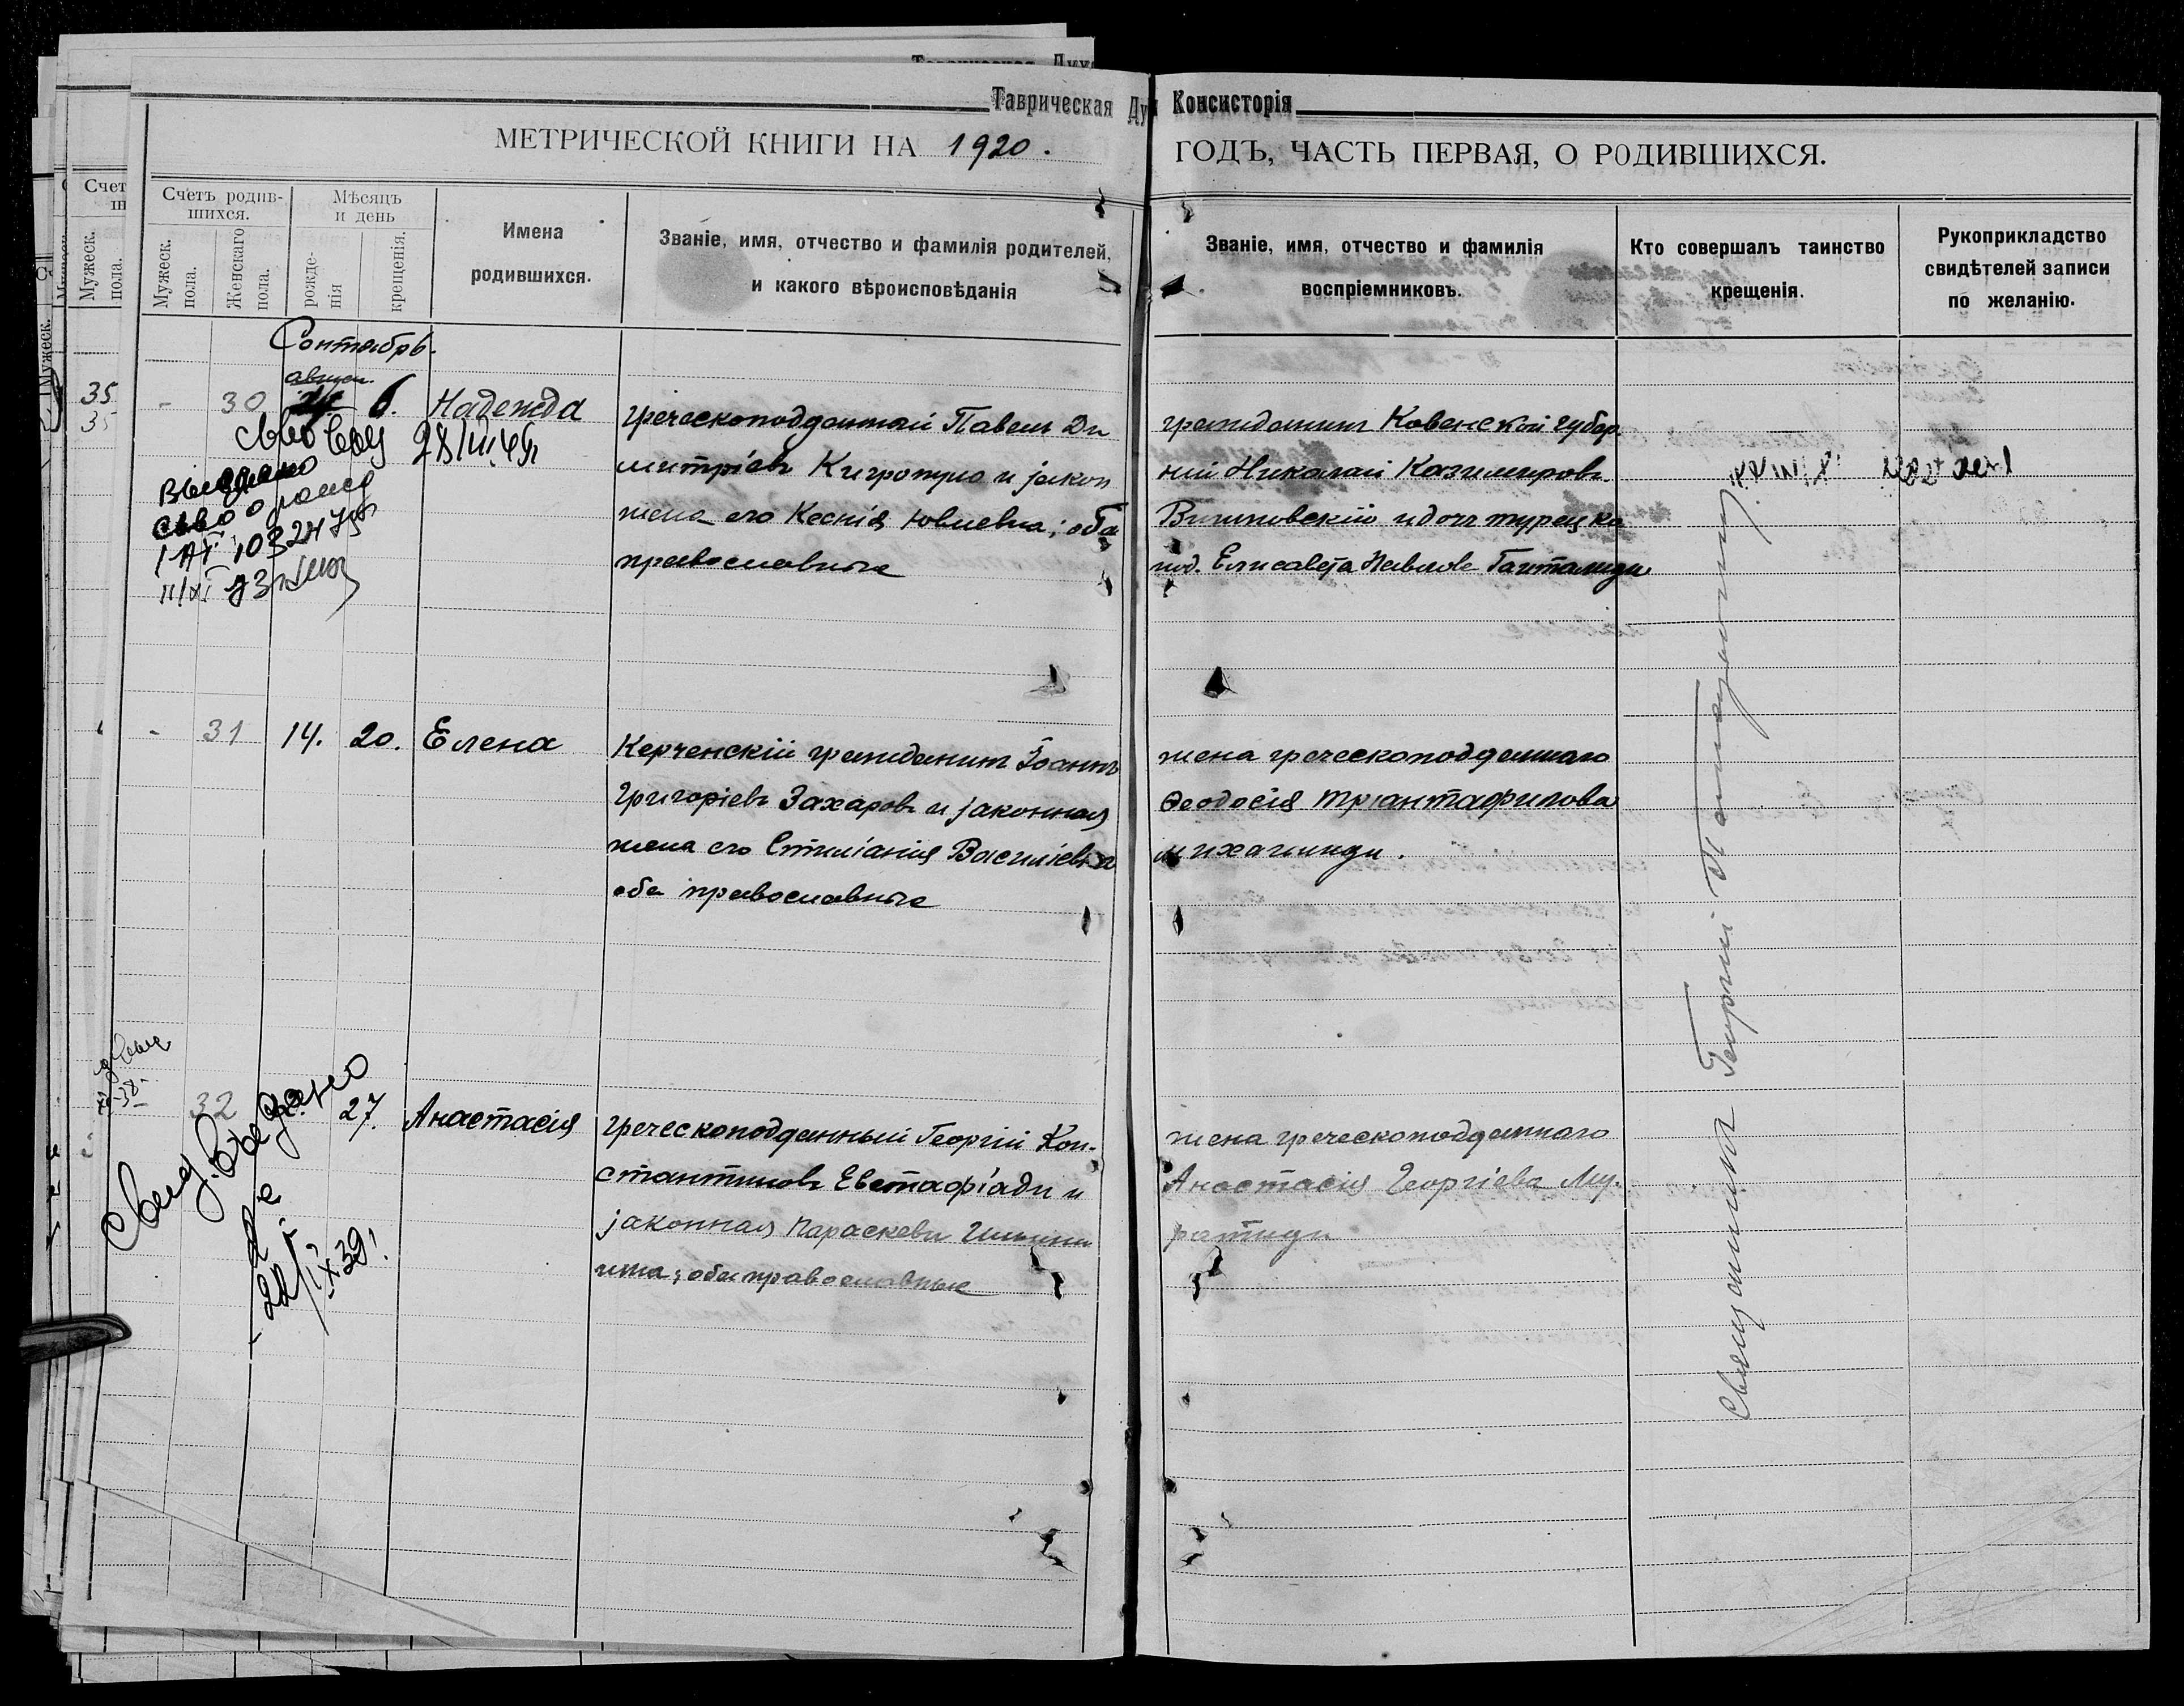 Таврическая Ду Консисторія
МЕТРИЧЕСКОЙ КНИГИ НА 1920.
ГОДЪ, ЧАСТЬ ПЕРВАЯ, О РОДИВШИХСЯ.
Счетъ родив-
шихся.
Мужеск.
пола.
Женскаго
пола.
Мѣсяцъ
и день
рожде-
нія
крещенія.
Имена
родившихся.
Званіе, имя, отчество и фамилія родителей,
и какого вѣроисповѣданія
Званіе, имя, отчество и фамилія
воспріемниковъ.
Кто совершалъ таинство
крещенія.
Рукоприкладство
свидѣтелей записи
по желанію.
Сентябрь.
август.
- 30 6. Надежда
греческоподданный Павелъ Ди
митріевъ и закон
жена его Ксенія ; оба
православные
гражданинъ Ковенской губер.
ніи Николай Казимировъ
и доч турецко
под. Елисавета Павлова
28/III 49г
Выдано
св-во о рожд
- 31 14. 20. Елена
Керченскій гражданинъ Іоаннъ
Григоріевъ Захаровъ и законная
жена его Стиліанія Василіевна
оба православные
жена греческоподданнаго
Ѳеодосія Тріантафилова
Михаилиди.
32 27. Анастасія
греческоподданный Георгій Кон-
стантиновъ Евстафіади и
законная Параскева
оба православные
жена греческоподданнаго
Анастасія Георгіева Му-
ратиди
Свид. выдано
22/IX 39г.
Священникъ Георгій
35
35